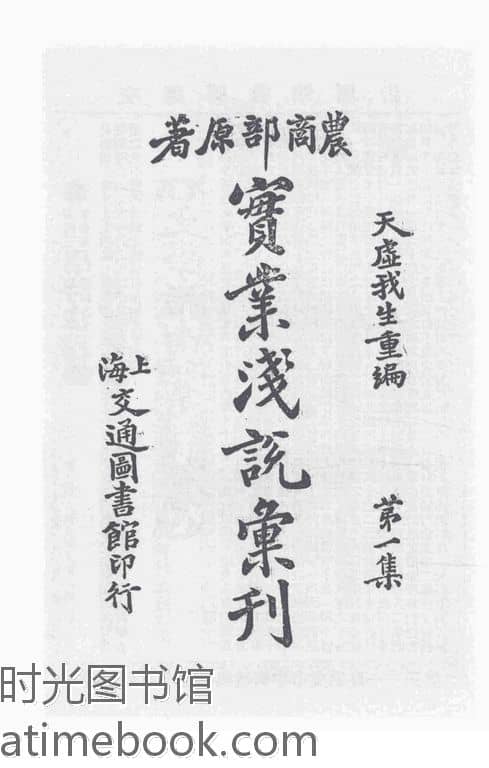 農商部原著
天虛我生重編
第一集
實業淺說彙刊
上海交通圖書館印行
时光图书馆
atimebook.com